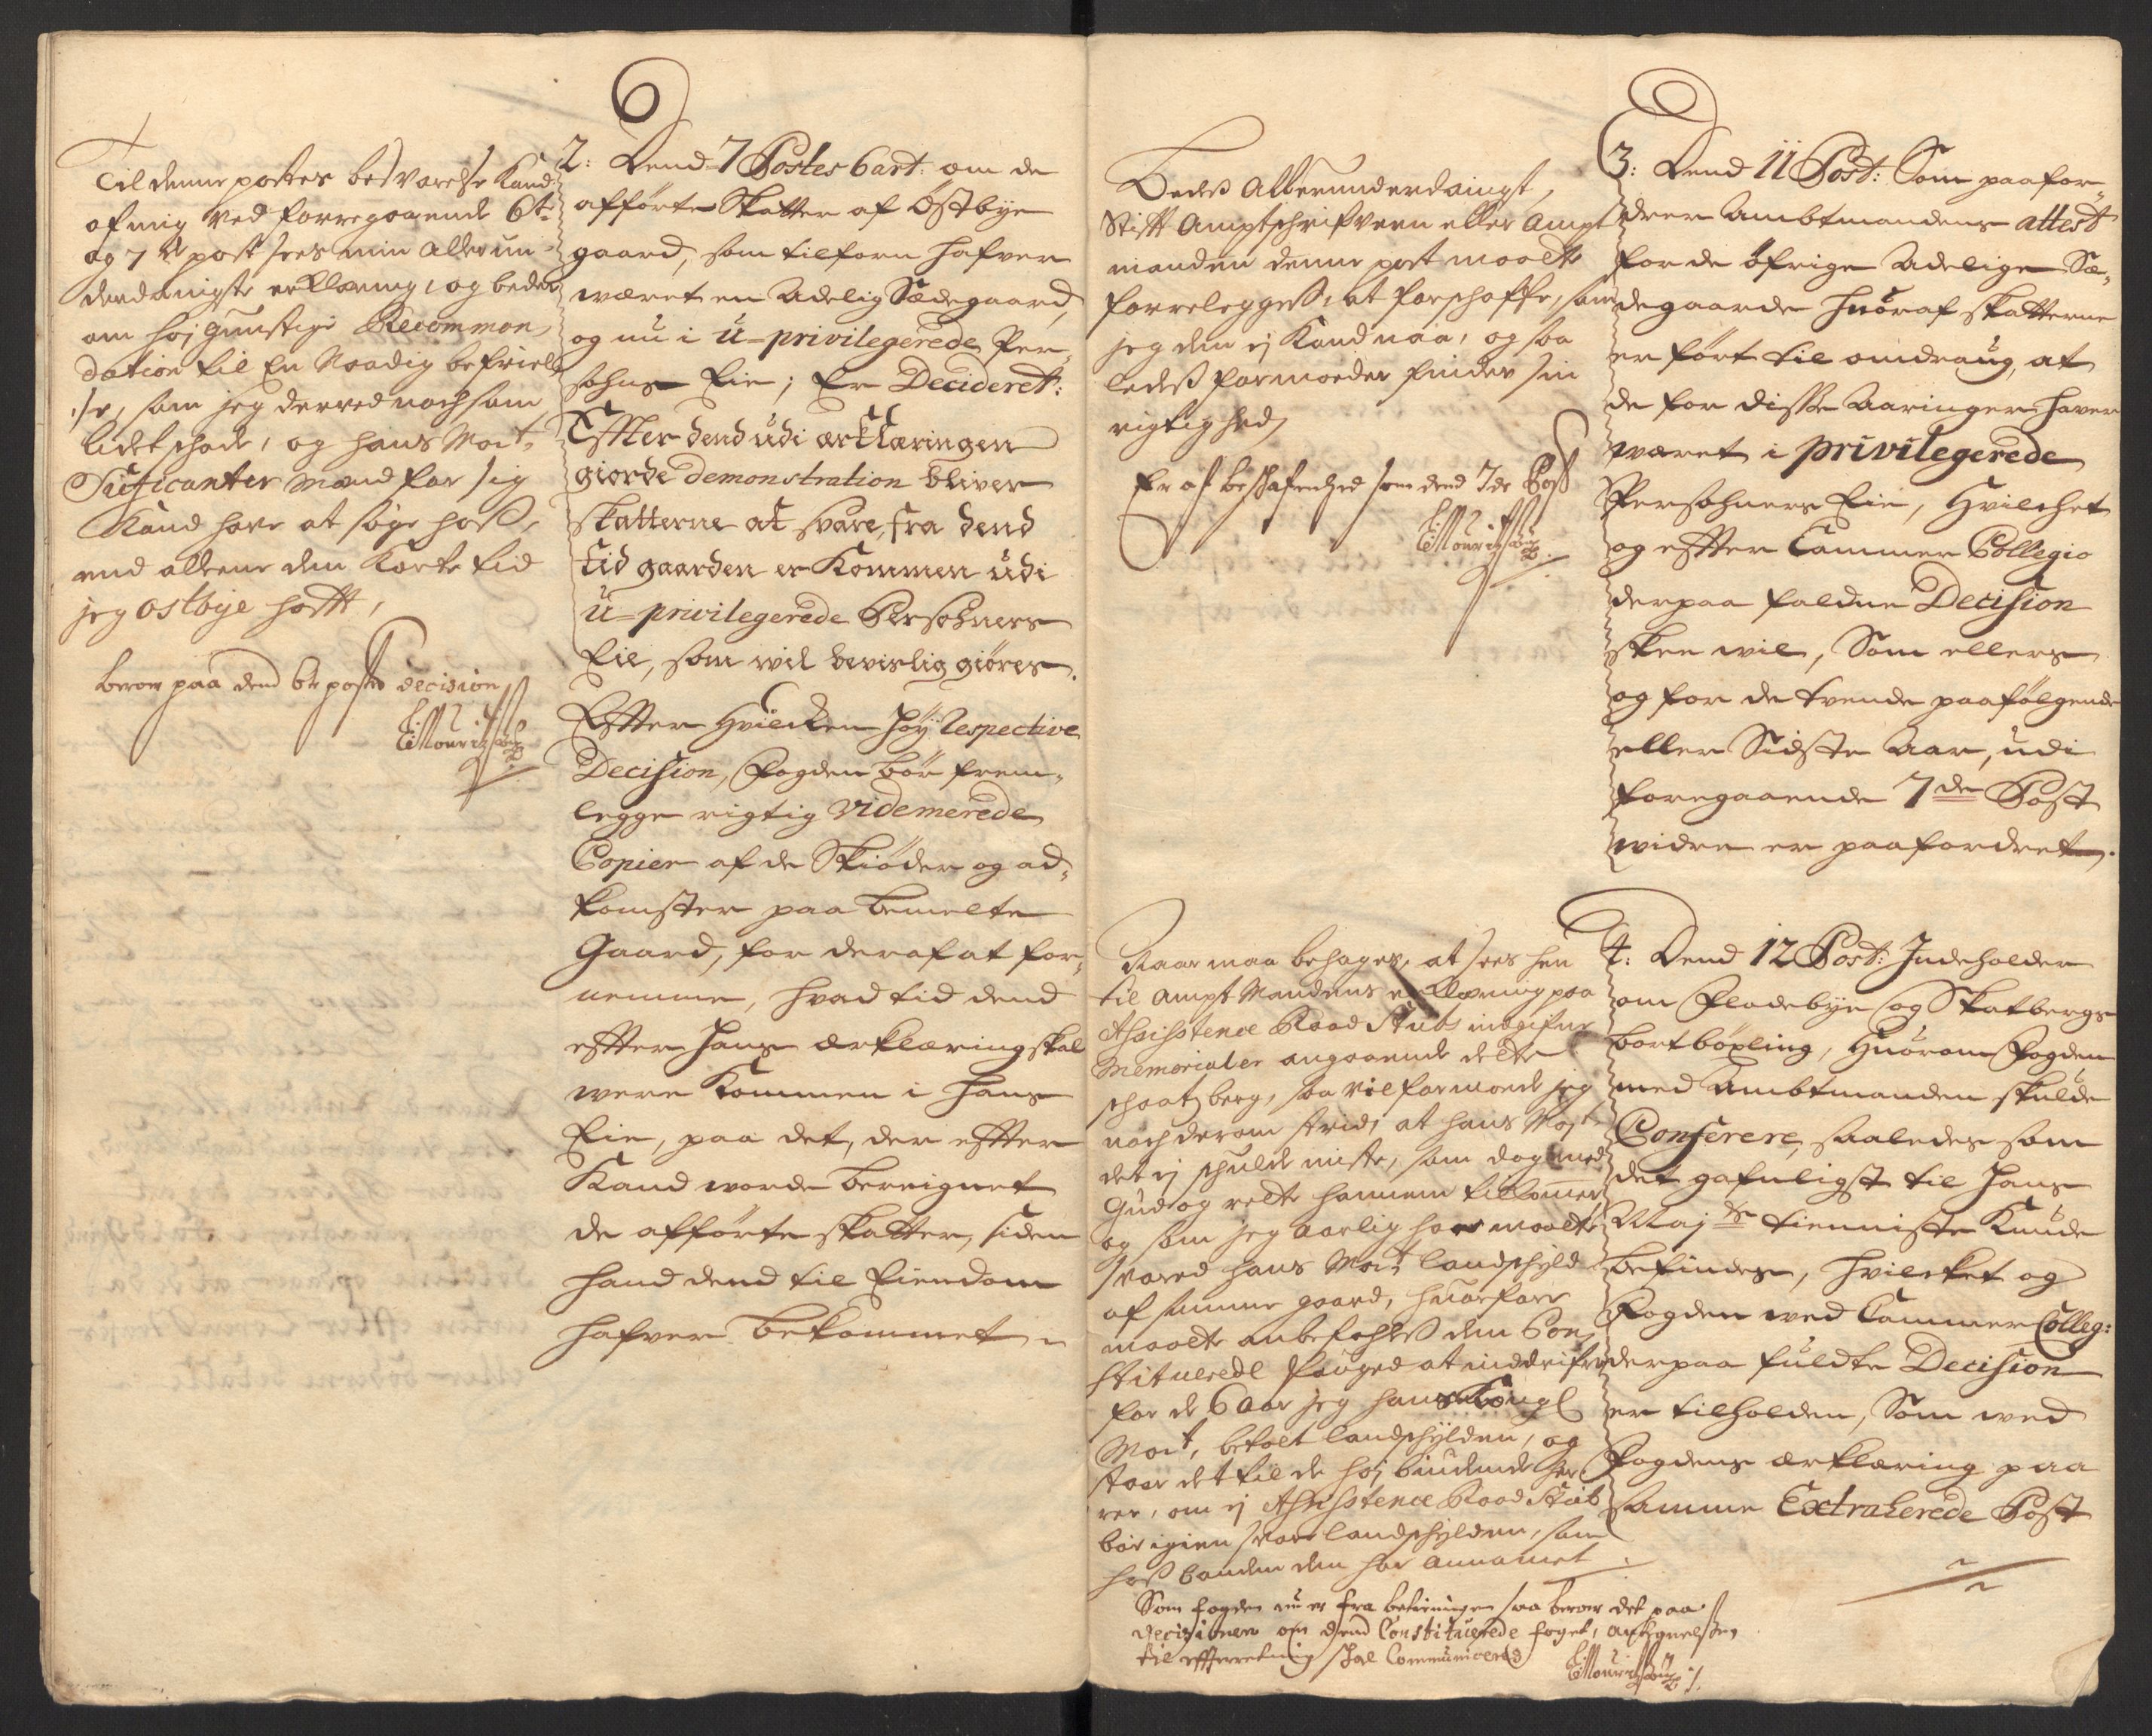 Til denne postes besvarelse Kand
af mig ved forregaaende 6te
og 7de post sees min allerun-
derdanigste erklæring, og beder
om høj gunstige Recommen
dation til En Naadig befriel
se, som jeg derved noch som
lidet schade, og hans Mait.
Suficanter mand for sig
Kand have at søge hoß,
end alleene den korte tid
jeg Ostbye hafft,
beroer paa dend 6te postes decision

2: Dend 7 Postes 6 art: om de
afførte Skatter af Østbye
gaard, som tilforn hafver
wæret en Adelig Sædegaard,
og nu i u-privilegerede Per-
sohns Eie; Er Decideret:
Effter dend udi ærklæringen
giorde demonstration bliver
skatterne at svare, fra dend
tid gaarden er Kommen udi
u-privilegerede Persohners
Eie, som wil bevislig giøres.
Effter hvilcken høy respective
Decision, Fogden bør frem-
legge rigtig videmerede
Copier af de Skiøder og ad-
komster paa bemelte
Gaard, for deraf at for-
nemme, hvad tid dend
effter hans ærklæring skal
were Kommen i hans
Eie, paa det, der effter
Kand worde beregnet
de afførte skatter, siden
hand dend til Eiendom
hafver bekommet

Bedes Allerunderdaingst,
Stifft Amptschrifveren eller Ampt
manden denne post maatte
forrelegges, at forschaffe, som
jeg den ej Kand naa, og saa
ledeß formoeder finder sin
rigtighed,
Er af beschafenhed som dend 7de Post

3: Dend 11 Post: Som paafor-
drer Ambtmandens attest
for de øfrige Adelige Sæ-
degaarde huoraf skatterne
er ført til omdraug, at
de for disse Aaringer haver
wæret i privilegerede
Persohners Eie, hvilchet
og effter Cammer Collegio
derpaa faldne Decision
skee wil, Som ellers
og for de tvende paafølgende
eller Sidste Aar, udi
foregaaende 7de Post
widre er paafordret.

Naar maa behages, at sees hen
til Ampt Mandens erklæring paa
Assistence Raad Stubs indgifne
Memorialer angaaende dette
schaatzberg, saa vil formode jeg
noch derom strid, at hans Mayt
det ej schulde miste, som dog med
Gud og rette hannem tilkommer
og som jeg aarlig har maatte
svared hans Mait landschyld
af samme gaard, huorfore
maatte anbefahles den Con
stituerede fouged at inddrifve
for de 6 Aar jeg hans Kongl
Mait, betalt landschylden, og
staar det til de høj biudende her
rer, om ej Assistence Raad Stub
bør igien svare landschylden, som
hoß bonden den har annamet.
Som fogden nu er fra betieningen saa beroer det paa
decisionen om dend Constituerede foget, antegnelsen
til effterretning schal Communiceres

4: Dend 12 Post: Indeholder
om Fladebye og Skatbergs
bortbøxling, huorom Fogden
med Ambtmanden skulde
Conferere, saaledes som
det gafnligst til Hans
Maj:ts tienniste Kunde
befindes, hvilcket og
Fogden wed Cammer Colleg:
derpaa fuldte Decision
er tilholden, Som wed
Fogdens ærklæring paa
samme Extraherede Post